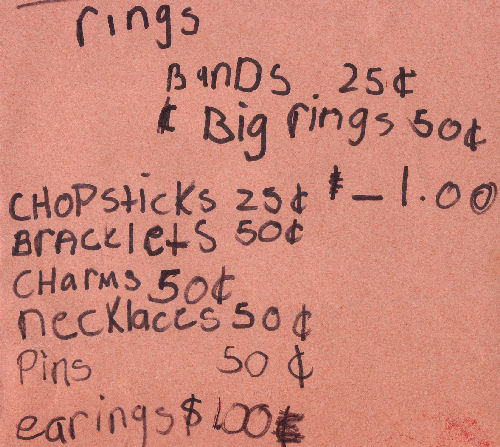 rings
BanDS 25¢
Big rings 50¢
CHOPSticKS 25¢ - 1.00
BRAcKletS 50¢
CHarms 50¢
necKlaces 50¢
Pins 50¢
earings $1.00